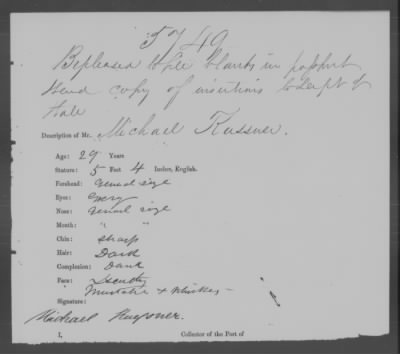 5749
Be pleased to fill blanks in passport
Send copy of insertions to Dept of
State
Description of Mr. Michael Kussner.
Age: 29 Years
Stature: 5 Feet 4 Inches, English.
Forehead: usual size
Eyes: Grey
Nose: usual size
Mouth: " "
Chin: sharp
Hair: Dark
Complexion: Dark
Face:
Mustache & Whiskers
Signature:
Michael
I, Collector of the Port of